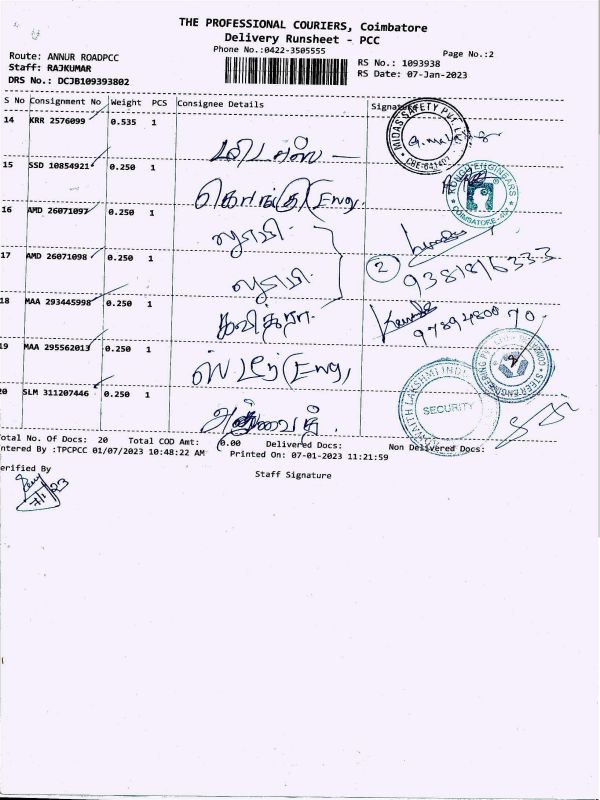 THE PROFESSIONAL COURIERS, Coimbatore
Delivery Runsheet - PCC
Phone No.:0422-3505555
Page No.:2
Route: ANNUR ROADPCC
RS No.: 1093938
Staff: RAJKUMAR
RS Date: 07-Jan-2023
DRS No.: DCJB109393802
S No Consignment No Weight PCS Consignee Details Signature
14 KRR 2576099 0.535 1
MIDAS SAFETY PVT. LTD.
CBE-641407
மிடாஸ் —
15 SSD 10854921 0.250 1
ENGINEERS
COIMBATORE
கொங்கு (Eng,
16 AMD 26071097 0.250 1
லூமி.
17 AMD 26071098 0.250 1
2 9381816333
லூமி.
18 MAA 293445998 0.250 1
9789480070
19 MAA 295562013 0.250 1
ஸ்டீர் (Eng,
STEER ENGINEERING
20 SLM 311207446 0.250 1
ADWAITH LAKSHMI
SECURITY
அத்வைத்
Total No. Of Docs: 20 Total COD Amt: 0.00 Delivered Docs: Non Delivered Docs:
Entered By :TPCPCC 01/07/2023 10:48:22 AM Printed On: 07-01-2023 11:21:59
Verified By
Staff Signature
7/1/23